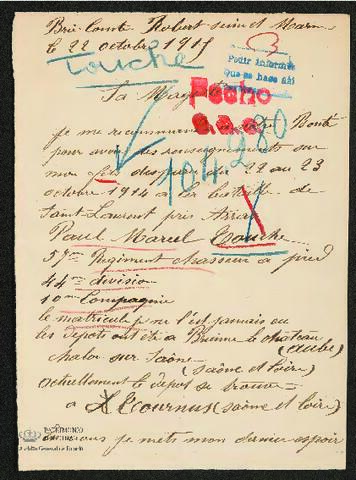 Brie Comte Robert seine et Marne
le 22 octobre 1917
Touché
Pedir informes
Que se hace ahi
Sa Majesté
Fecho
je me recommande votre Bonté
pour avoir des renseignements sur
mon fils disparu du 22 au 23
octobre 1914 a la bataille de
Saint Laurent près Arras
104280
Paul Marcel Touche
57me Regiment chasseur a pied
44me division
10me Compagnie
le matricule je ne l'est jamais eu
les depots ont été a Brienne le château
(Aube)
chalon sur Saône
(saône et loire)
actuellement le depot se trouve
a Tournus (saône et loire)
PATRIMONIO
NACIONAL
je mets mon dernier espoir